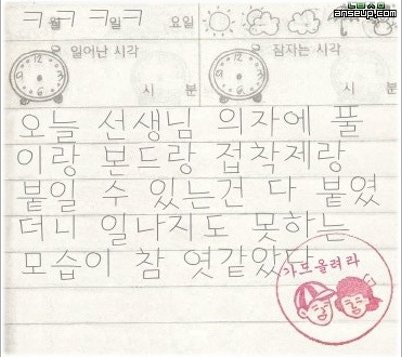 ANSEUP.COM
ㅋ월ㅋ ㅋ일ㅋ 요일
일어난 시각 잠자는 시각
시 분 시 분
오늘 선생님 의자에 풀
이랑 본드랑 접착제랑
붙일 수 있는건 다 붙였
더니 일나지도 못하는
모습이 참 엿같았다
가드올려라